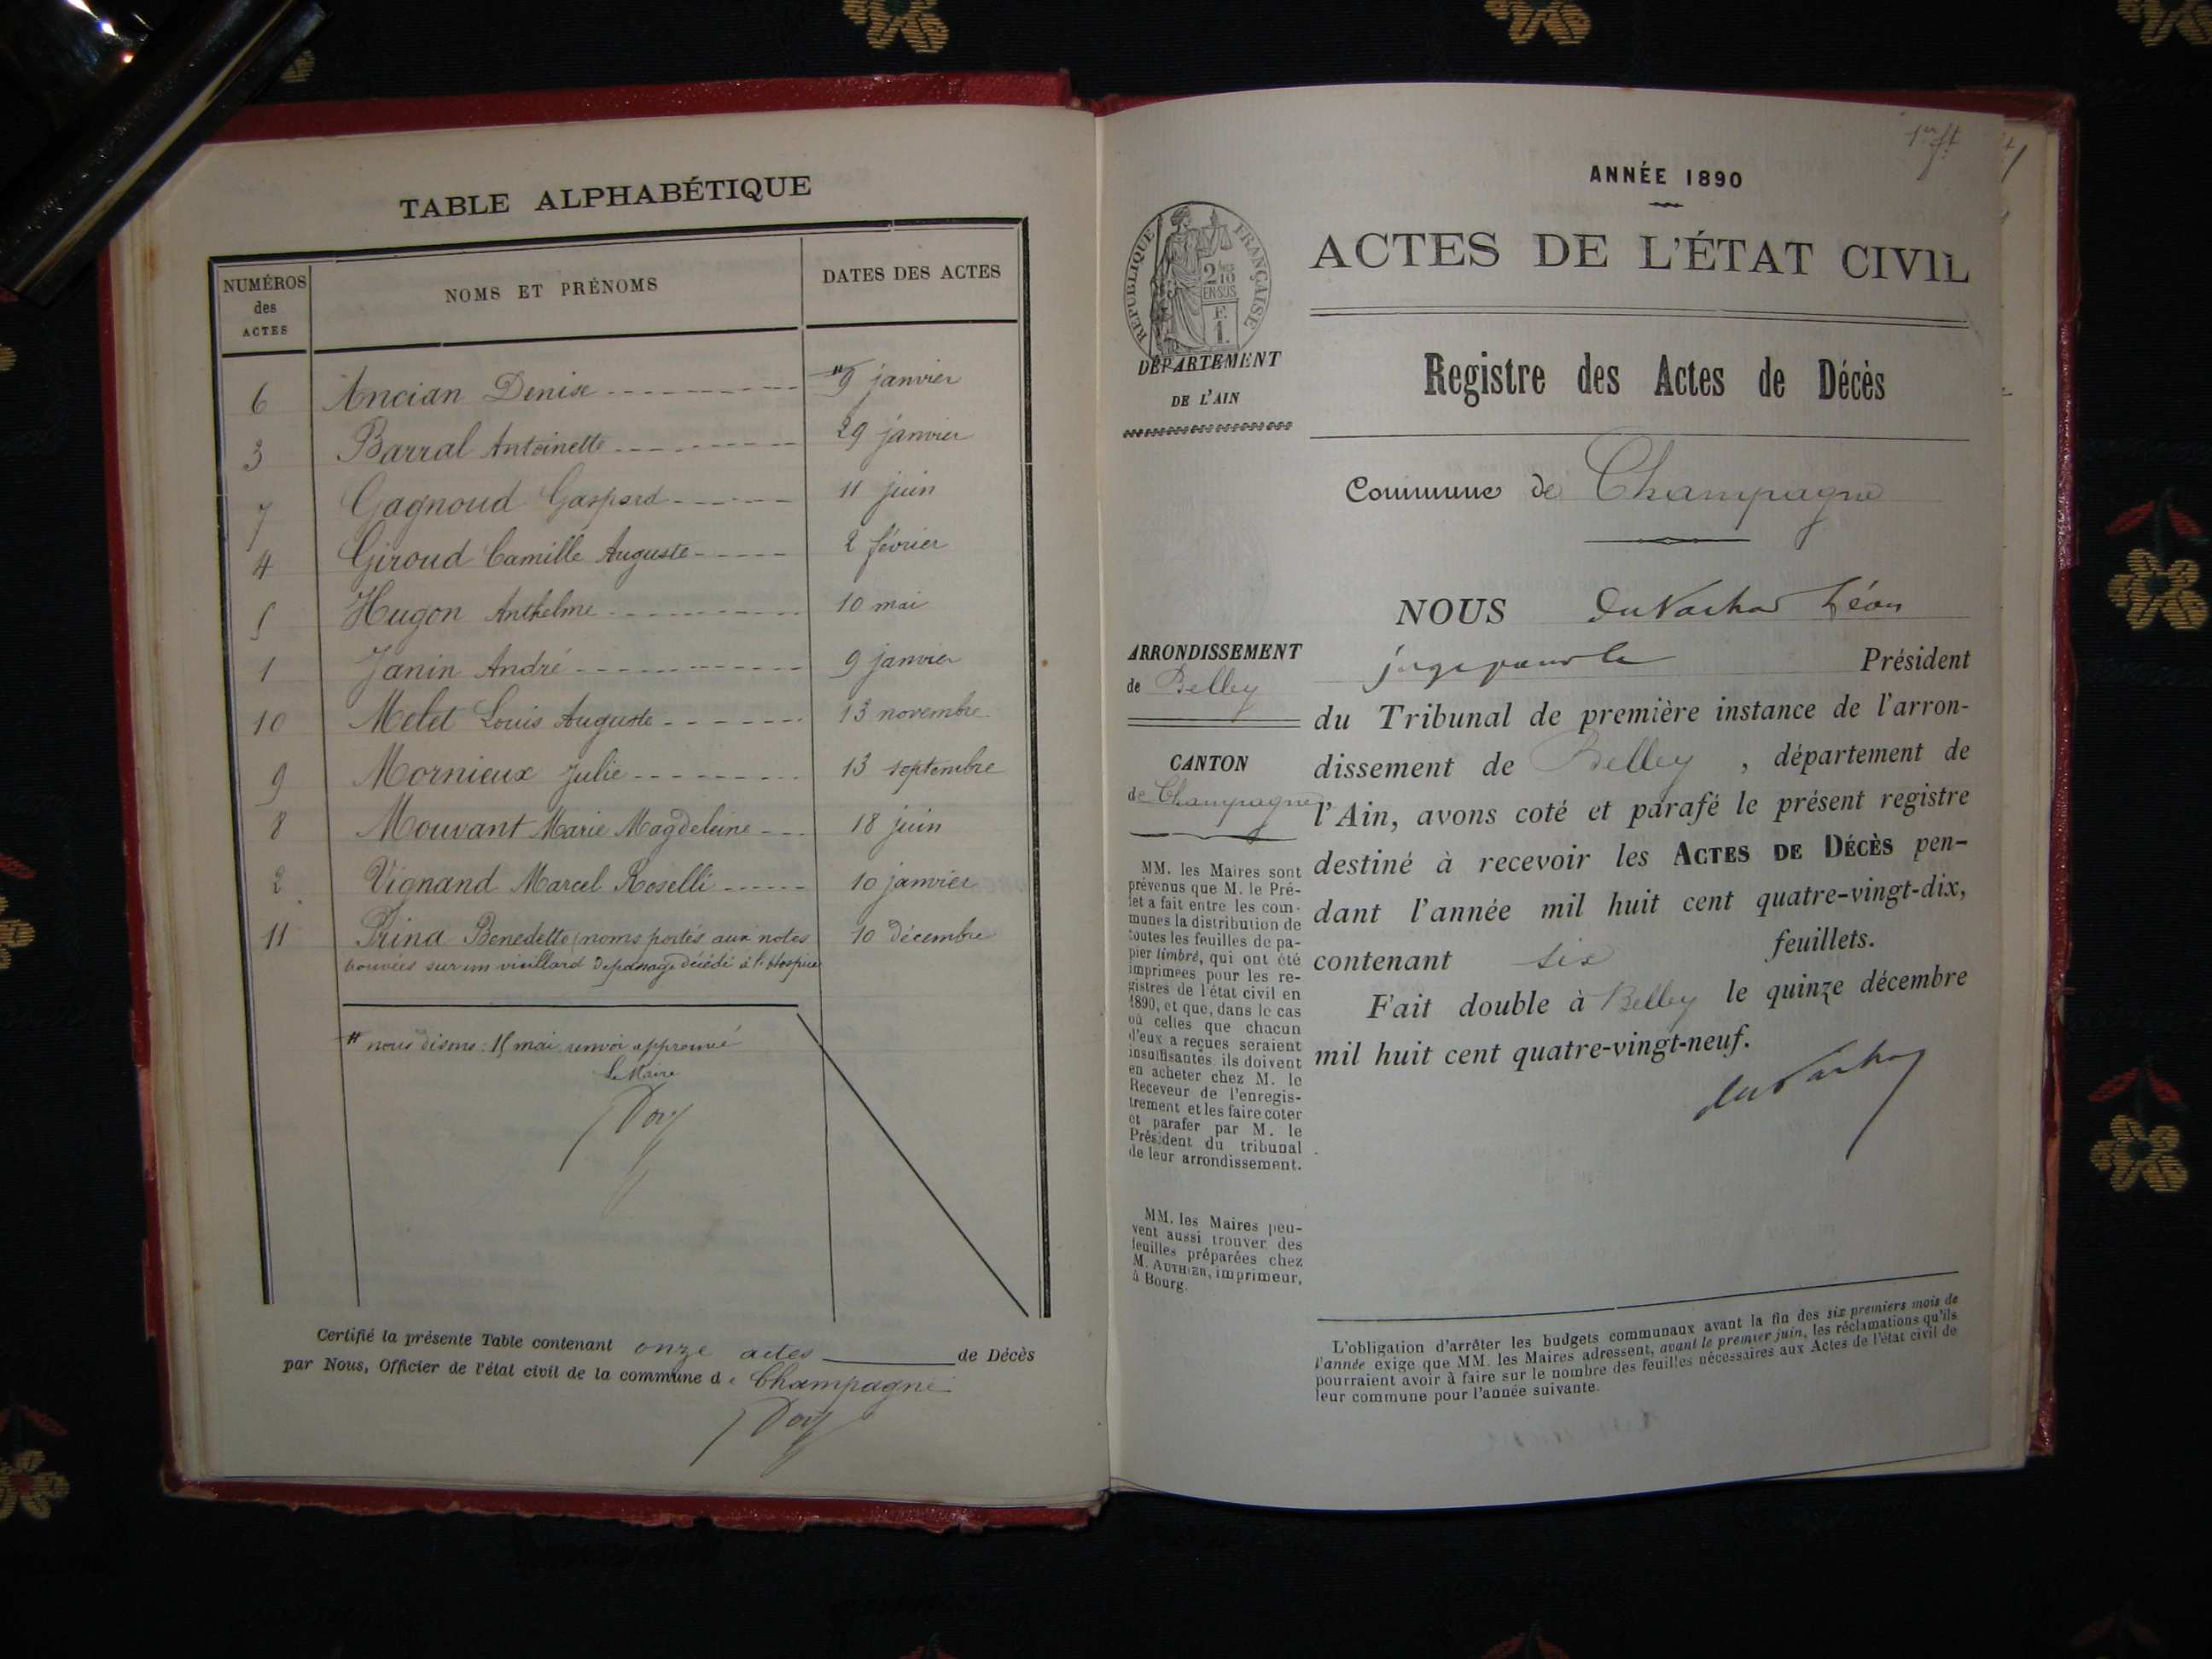 TABLE ALPHABÉTIQUE
NUMÉROS des ACTES
NOMS ET PRÉNOMS
DATES DES ACTES
6 Ancian Denise # 9 janvier
3 Barral Antoinette 29 janvier
7 Gagnoud Gaspard 11 juin
4 Giroud Camille Auguste 2 février
5 Hugon Anthelme 10 mai
1 Janin André 9 janvier
10 Melet Louis Auguste 13 novembre
9 Mornieux Julie 13 septembre
8 Mouvant Marie Magdeleine 18 juin
2 Vignand Marcel Roselli 10 janvier
11 Prina Benedetto (noms portés aux notes 10 décembre
trouvées sur un vieillard de passage décédé à l'Hospice
# nous disons : 15 mai, renvoi approuvé
Le Maire
Certifié la présente Table contenant onze actes de Décès
par Nous, Officier de l'état civil de la commune de Champagne
1er ft
ANNÉE 1890
RÉPUBLIQUE FRANÇAISE
2/10 EN SUS
F. 1.
ACTES DE L'ÉTAT CIVIL
DÉPARTEMENT
DE L'AIN
Registre des Actes de Décès
Commune de Champagne
ARRONDISSEMENT
de Belley
CANTON
de Champagne
MM. les Maires sont
prévenus que M. le Pré-
fet a fait entre les com-
munes la distribution de
toutes les feuilles de pa-
pier timbré, qui ont été
imprimées pour les re-
gistres de l'état civil en
1890, et que, dans le cas
où celles que chacun
d'eux a reçues seraient
insuffisantes, ils doivent
en acheter chez M. le
Receveur de l'enregis-
trement et les faire coter
et parafer par M. le
Président du tribunal
de leur arrondissement.
MM. les Maires peu-
vent aussi trouver des
feuilles préparées chez
M. AUTHIER, imprimeur,
à Bourg.
NOUS Léon
Président
du Tribunal de première instance de l'arron-
dissement de Belley, département de
l'Ain, avons coté et parafé le présent registre
destiné à recevoir les ACTES DE DÉCÈS pen-
dant l'année mil huit cent quatre-vingt-dix,
contenant six feuillets.
Fait double à Belley le quinze décembre
mil huit cent quatre-vingt-neuf.
L'obligation d'arrêter les budgets communaux avant la fin des six premiers mois de
l'année exige que MM. les Maires adressent, avant le premier juin, les réclamations qu'ils
pourraient avoir à faire sur le nombre des feuilles nécessaires aux Actes de l'état civil de
leur commune pour l'année suivante.